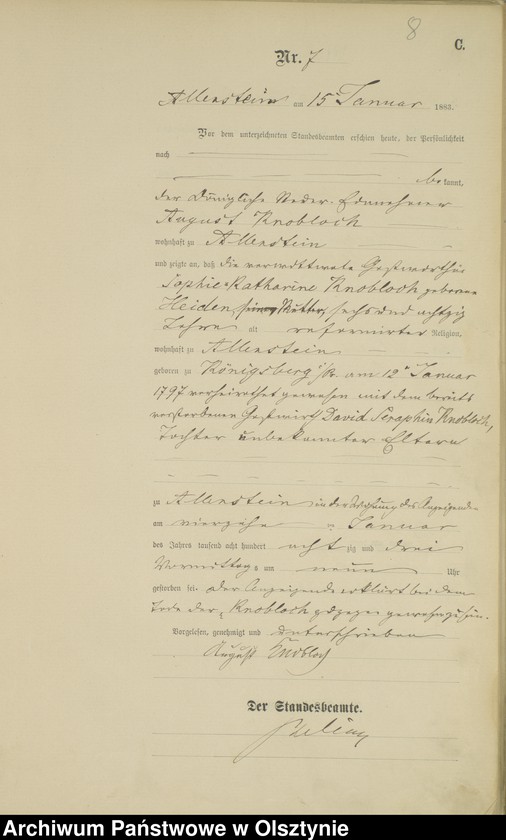 8
C.
Nr. 7
Allenstein am 15 Januar 1883.
Vor dem unterzeichneten Standesbeamten erschien heute, der Persönlichkeit
nach
be kannt,
der Königliche
August Knobloch
wohnhaft zu Allenstein
und zeigte an, daß die verwittwete Gastwirthin
Sophie Katharine Knobloch geborene
Heiden, seine Mutter, sechs und achtzig
Jahre alt reformirter Religion,
wohnhaft zu Allenstein
geboren zu Königsberg i/Pr. am 12 Januar
1797 verheirathet gewesen mit dem bereits
verstorbenen Gastwirth David Seraphin Knobloch,
Tochter unbekannter Eltern
zu Allenstein in der Wohnung des Anzeigenden
am vierzehn Januar
des Jahres tausend acht hundert acht zig und drei
Vormittags um neun Uhr
gestorben sei. Der Anzeigende erklärt bei dem
Tode der Knobloch zugegen gewesen zu sein.
Vorgelesen, genehmigt und unterschrieben
August Knobloch
Der Standesbeamte.
Archiwum Państwowe w Olsztynie